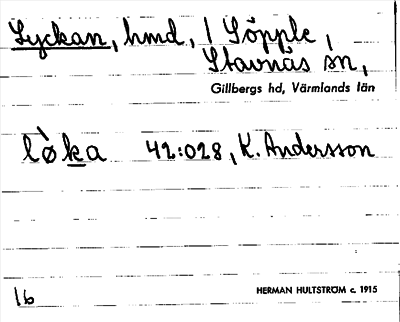 Lyckan, hmd, 1 Söpple,
Stavnäs sn,
Gillbergs hd, Värmlands län
lö̀ka 42:028, K. Andersson
HERMAN HULTSTRÖM c. 1915
16